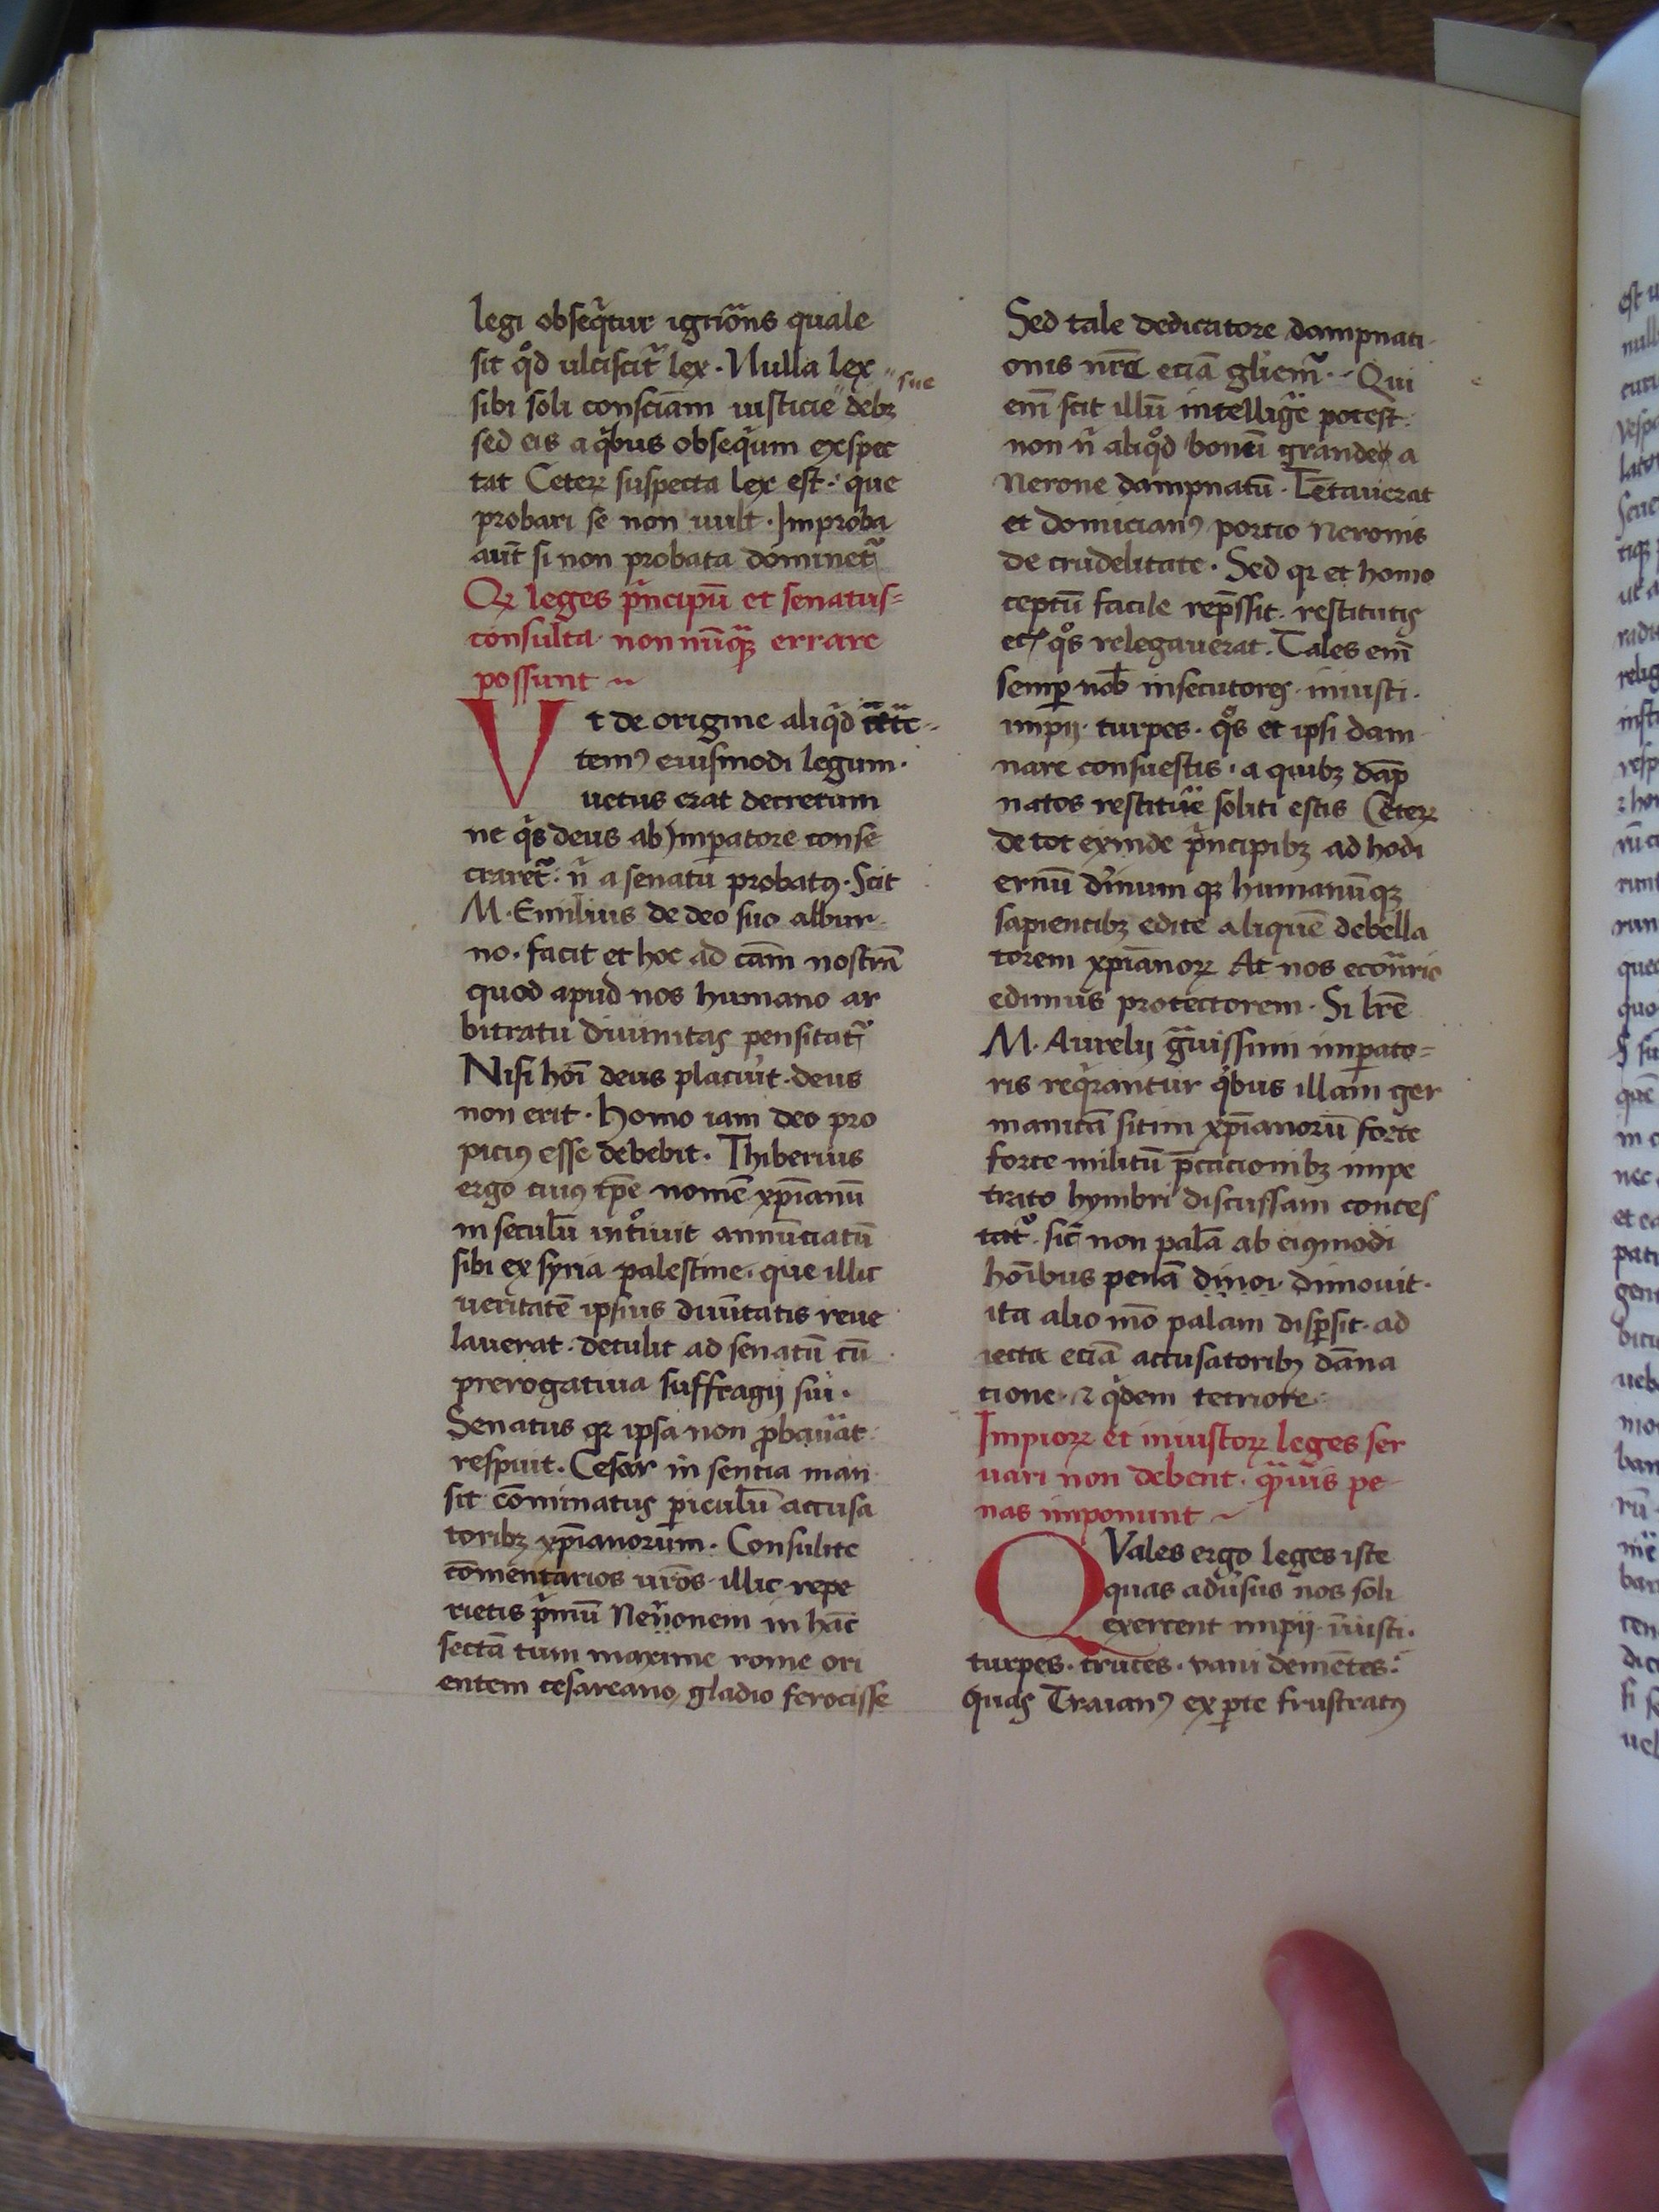 legi obseq̃tur igriõns quale
sit qͦd ulciscit᷑ lex · Nulla lex
sibi soli consciam iusticie sue debꝫ
sed eis a qͥbus obseqͥum exspec
tat Ceteꝝ suspecta lex est · que
probari se non uult · Improba
aut̃ si non probata dominet᷑
Qꝛ leges pͥncipũ et senatus=
consulta · non nũqᷓꝫ errare
possunt ~
Vt de origine aliqͥd
temꝰ eiusmodi legum ·
uetus erat decretum
ne qͥs deus ab Imꝑatore conse
craret᷑ · ñ a senatu probatꝰ · Scit
M · Emilius de deo suo albur=
no · facit et hoc ad cãm nostrã
quod apud nos humano ar
bitratu diuinitas pensitat᷑
Nisi hoĩ deus placu̾it · deus
non erit · Homo iam deo pro
piciꝰ esse debebit · Thiberius
ergo cuiꝰ tp̃e nomẽ xp̃ianũ
in seculũ intͦiuit annũciatũ
sibi ex syria palestine · que illic
ueritatẽ ipsius diuĩtatis reue
lauerat · detulit ad senatũ cũ
prerogatiua suffragij sui ·
Senatus qꝛ ipsa non ꝓbau̾at
respuit · Cesar in sentẽcia man
sit cõminatus ꝑiculũ accusa
toribꝫ xp̃ianorum · Consulite
cõmentarios ur̃os · illic repe
rietis pͥmũ Neronem in hãc
sectã tum maxime rome ori
entem cesareano gladio ferocisse
Sed tale dedicatore dampnati
onis nr̃e eciã gl̃iem᷑ · Qui
em̃ scit illũ intellig̾e potest ·
non ñ aliqͦd bonũ grande a
Nerone dampnatũ · Tẽtauerat
et domicianꝰ portio neronis
de crudelitate · Sed qꝛ et homo
ceptũ facile rep̃ssit · restitutis
eciã qͦs relegauerat · Tales em̃
semꝑ nob̃ insecutores · iniusti ·
impij · turpes · qͦs et ipsi dam
nare consuestis · a quibꝫ dãp
natos restitu̾e soliti estis Ceteꝝ
de tot exinde pͥncipibꝫ ad hodi
ernũ diuinum qꝫ humanũqꝫ
sapientibꝫ edite aliquẽ debella
torem xp̃ianoꝝ At nos econᷓrio
edimus protectorem · Si lr̃e
M · Aurelij gᷓuissimi imꝑato=
ris reqͥrantur qͥbus illam ger
manicã sitim xp̃ianorũ forte
forte militũ p̃cacionibꝫ impe
trato hymbri discussam contes
tat᷑ · sic̃ non palã ab eiꝰmodi
hoĩbus penã dimoi · dimouit ·
ita alio mõ palam disꝑsit · ad
iecta eciã accusatoribꝫ dãna
tione · ⁊ qͥdem tetriore ·
Impioꝝ et iniustoꝝ leges ser
uari non debent · qᷓuis pe
nas imponunt ~
QVales ergo leges iste
quas adu̾sus nos soli
exercent impij · iniusti ·
turpes · truces · vani demẽtes ·
quas Traianꝰ ex ꝑte frustratꝰ